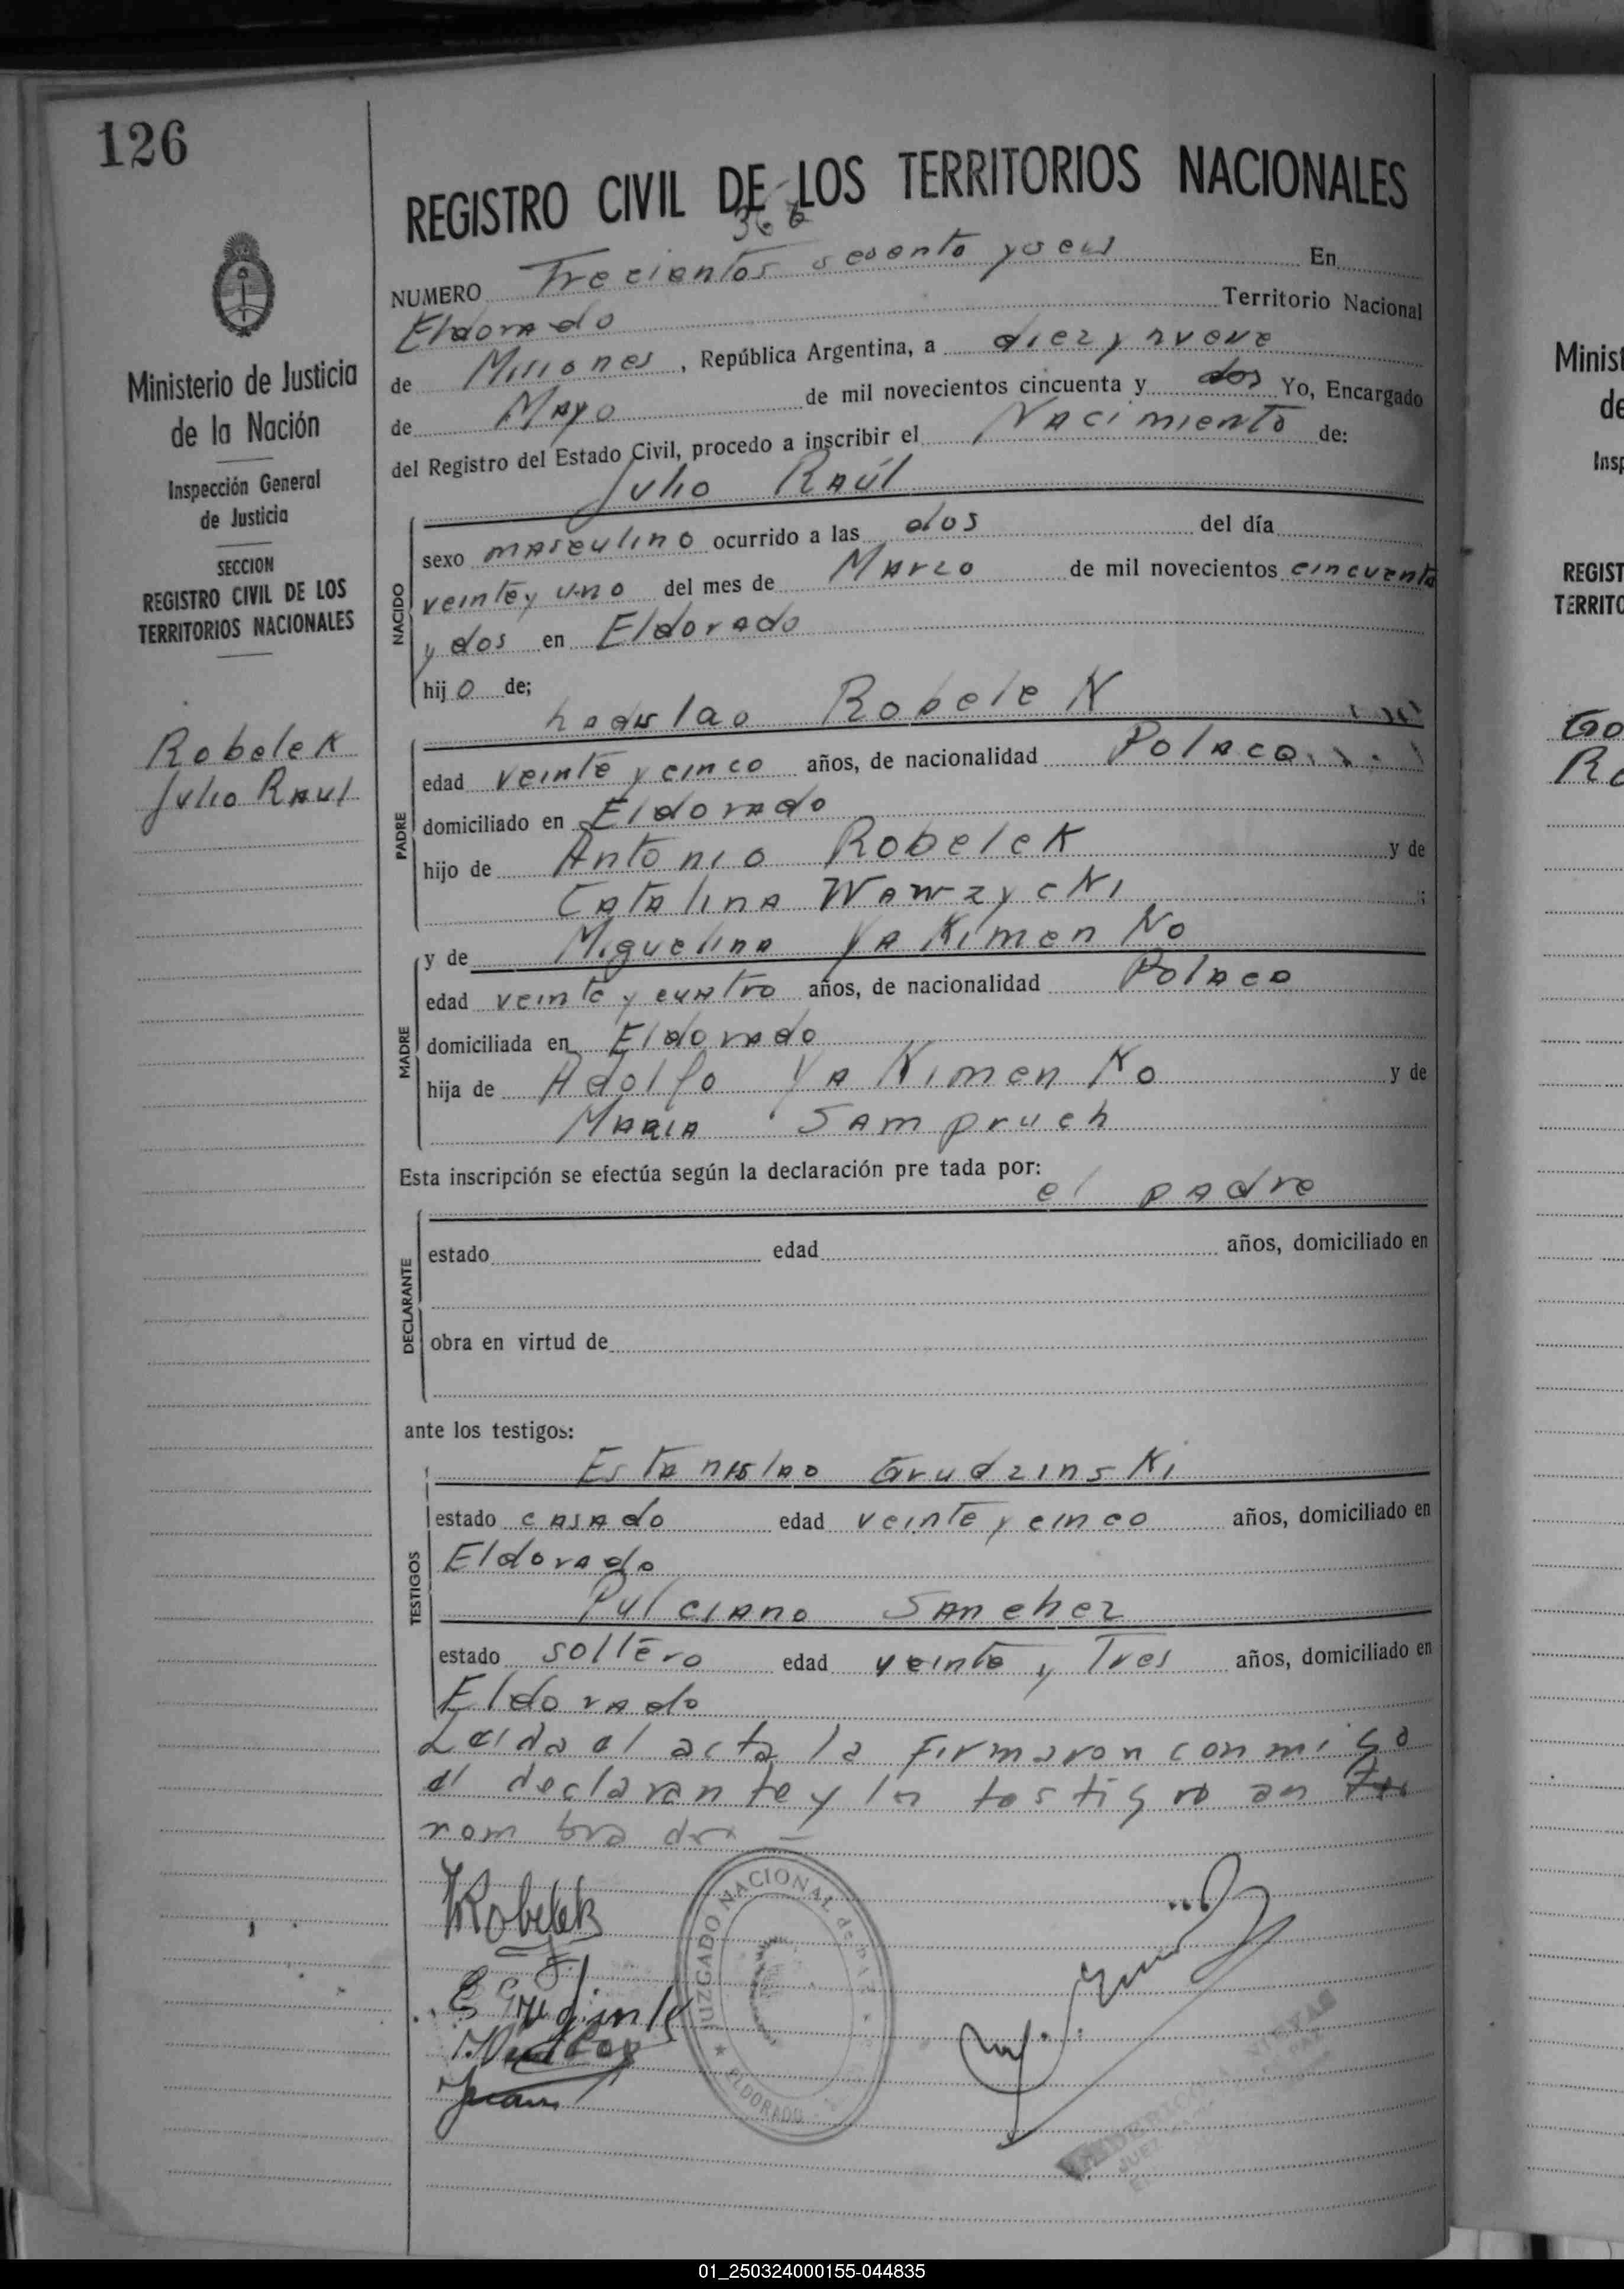 126
REGISTRO CIVIL DE LOS TERRITORIOS NACIONALES
366
NUMERO Trecientos sesenta y seis En
Eldorado Territorio Nacional
de Misiones, República Argentina, a diez y nueve
de Mayo de mil novecientos cincuenta y dos Yo, Encargado
del Registro del Estado Civil, procedo a inscribir el Nacimiento de:
Julio Raúl
NACIDO
sexo masculino ocurrido a las dos del día
veinte y uno del mes de Marzo de mil novecientos cincuenta
y dos en Eldorado
hijo de;
Ladislao Robelek
PADRE
edad veinte y cinco años, de nacionalidad Polaco
domiciliado en Eldorado
hijo de Antonio Robelek y de
Catalina Wawzycki
MADRE
y de Miguelina Yakimenko
edad veinte y cuatro años, de nacionalidad Polaca
domiciliada en Eldorado
hija de Adolfo Yakimenko y de
Maria Sampruch
Esta inscripción se efectúa según la declaración pre tada por:
el padre
DECLARANTE
estado edad años, domiciliado en
obra en virtud de
ante los testigos:
TESTIGOS
Estanislao Grudzinski
estado casado edad veinte y cinco años, domiciliado en
Eldorado
Pulciano Sanchez
estado soltero edad veinte y Tres años, domiciliado en
Eldorado
Leida el acta la firmaron conmigo
el declarante y los testigos an
nombrados
Robelek
JUZGADO NACIONAL de PAZ
ELDORADO
JUEZ
Ministerio de Justicia
de la Nación
Inspección General
de Justicia
SECCION
REGISTRO CIVIL DE LOS
TERRITORIOS NACIONALES
Robelek
Julio Raul
Minist
de
Insp
REGIST
TERRITO
Go
Ro
01_250324000155-044835